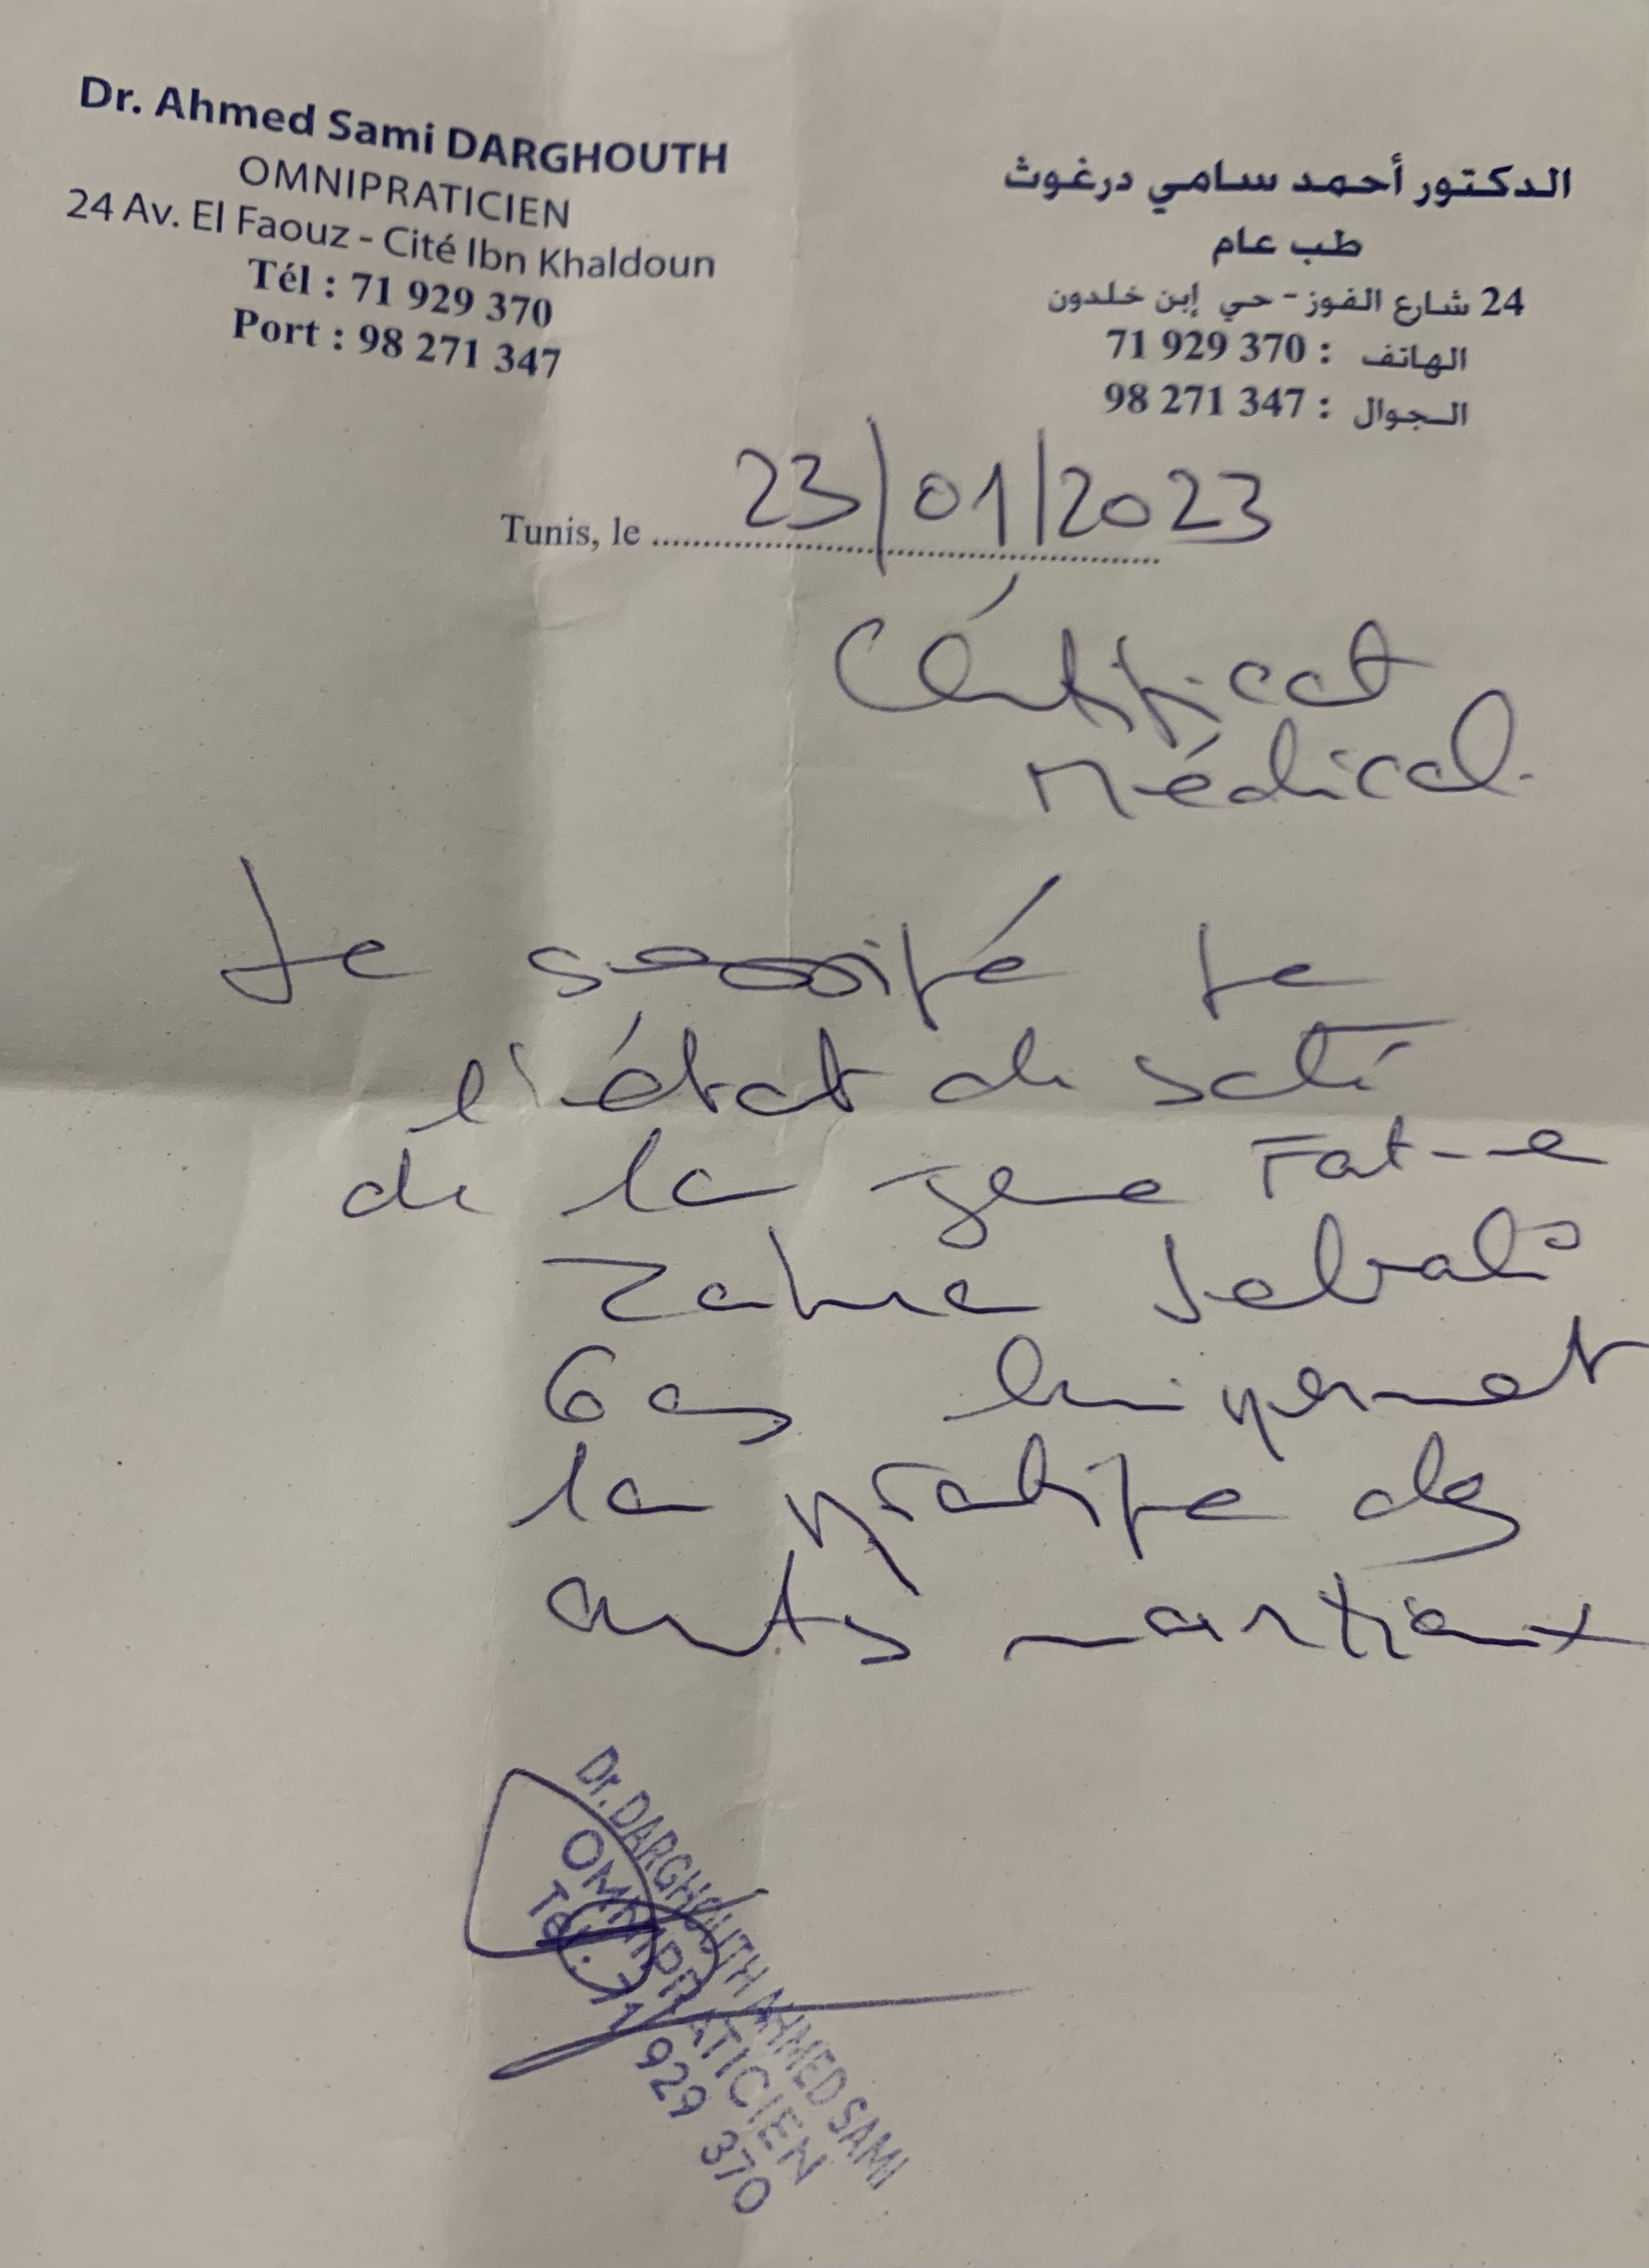 Dr. Ahmed Sami DARGHOUTH
OMNIPRATICIEN
24 Av. El Faouz - Cité Ibn Khaldoun
Tél : 71 929 370
Port : 98 271 347
الدكتور أحمد سامي درغوث
طب عام
24 شارع الفوز - حي إبن خلدون
الهاتف : 71 929 370
الجوال : 98 271 347
Tunis, le 23/01/2023
Cértificat
Médical.
Je
l'état de
de la Fat
Zahra
6 ans lui permet
la pratique des
arts martiaux
Dr. DARGHOUTH AHMED SAMI
OMNIPRATICIEN
Tél : 71 929 370